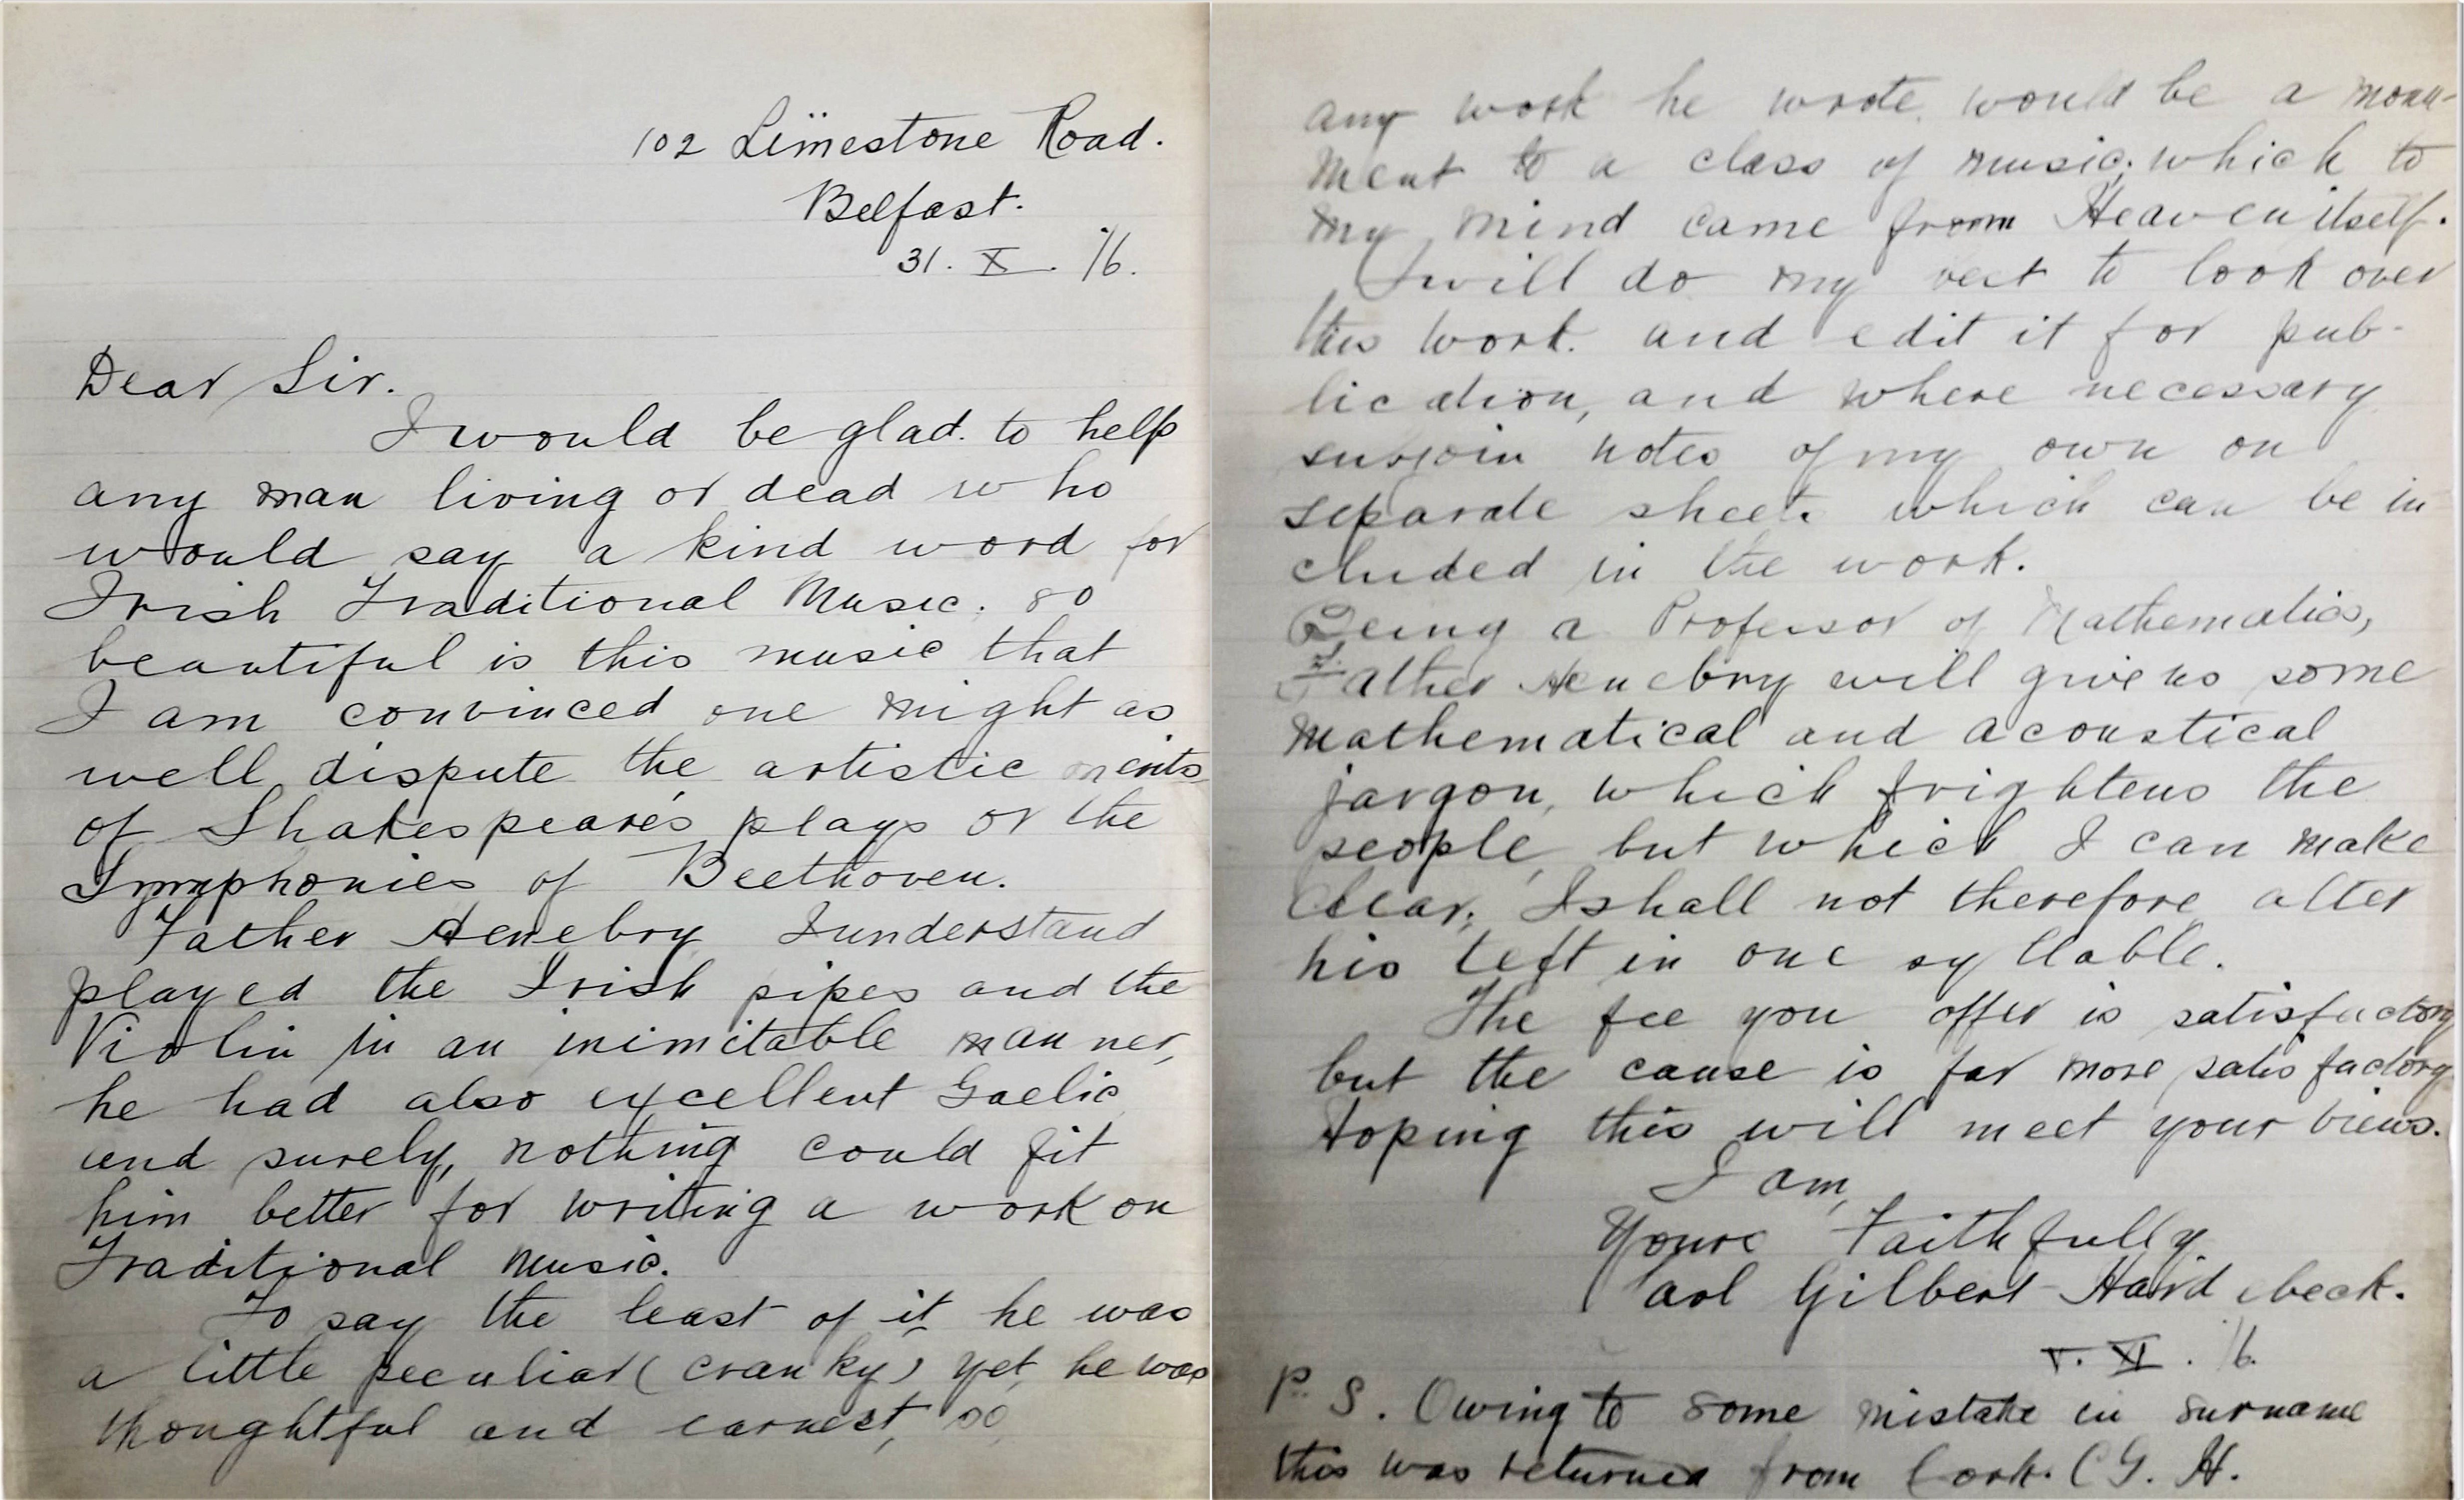 102 Limestone Road.
Belfast.
31. X. 16.
Dear Sir.
I would be glad. to help
any man living or dead who
would say a kind word for
Irish Traditional Music. so
beautiful is this music that
I am convinced one might as
well dispute the artistic merits
of Shakespeare's plays or the
Symphonies of Beethoven.
Father Henebry I understand
played the Irish pipes and the
Violin in an inimitable manner,
he had also excellent Gaelic
and surely, nothing could fit
him better for writing a work on
Traditional Music.
To say the least of it he was
a little peculiar (cranky) yet, he was
thoughtful and earnest, so,
any work he wrote would be a monu-
ment to a class of music, which to
my mind came from Heaven itself.
I will do my best to look over
this work. and edit it for pub-
lication, and where necessary
subjoin notes of my own on
separate sheets which can be in
cluded in the work.
Being a Professor of Mathematics,
Father Henebry will give us some
mathematical and acoustical
jargon, which frightens the
people, but which I can make
clear. I shall not therefore alter
his text in one syllable.
The fee you offer is satisfactory
but the cause is far more satisfactory
Hoping this will meet your views.
I am,
Yours Faithfully.
Carl Gilbert Hardebeck.
V. XI. 16.
P. S. Owing to some mistake in surname
this was returned from Cork. C G. H.